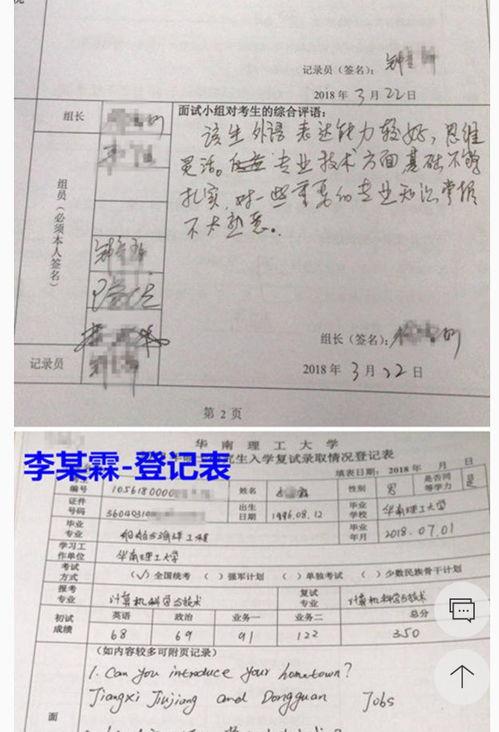 记录员（签名）：
2018 年 3 月 22 日
组长
面试小组对考生的综合评语：
该生外语表达能力较好，思维
灵活。但 专业技术方面基础不够
扎实，对一些重要的专业知识掌握
不太熟悉。
组员（必须本人签名）
组长（签名）：
2018 年 3 月 22 日
记录员
第 2 页
华南理工大学
李某霖-登记表
究生入学复试录取情况登记表
填表日期： 2018 年 月 日
编号
1056180000
姓名
性别
男
是否同等学力
是
证件号码
36040310
出生日期
1996.08.12
毕业学校
华南理工大学
毕业专业
船舶与海洋工程
毕业年月
2018.07.01
学习工作单位
华南理工大学
考试方式
（√）全国统考 （ ）强军计划 （ ）单独考试 （ ）少数民族骨干计划
报考专业
计算机科学与技术
复试专业
计算机科学与技术
初试成绩
英语 政治 业务一 业务二 总分
68 69 91 122 350
（如内容较多可附页记录）
1. Can you introduce your hometown?
Jiangxi Jiujiang and Dongguan Jobs
面